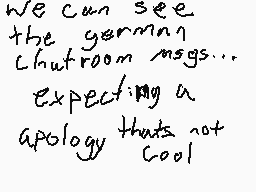 We can see
the german
chatroom msgs...
expecting a
apology thats not
cool